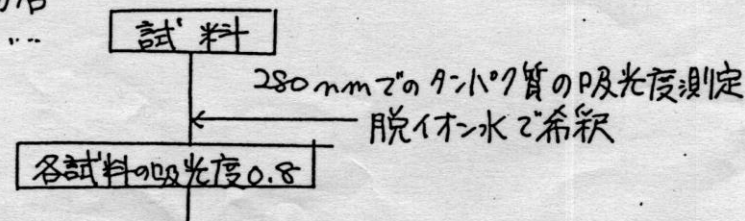 試料
280nmでのタンパク質の吸光度測定
脱イオン水で希釈
各試料の吸光度0.8